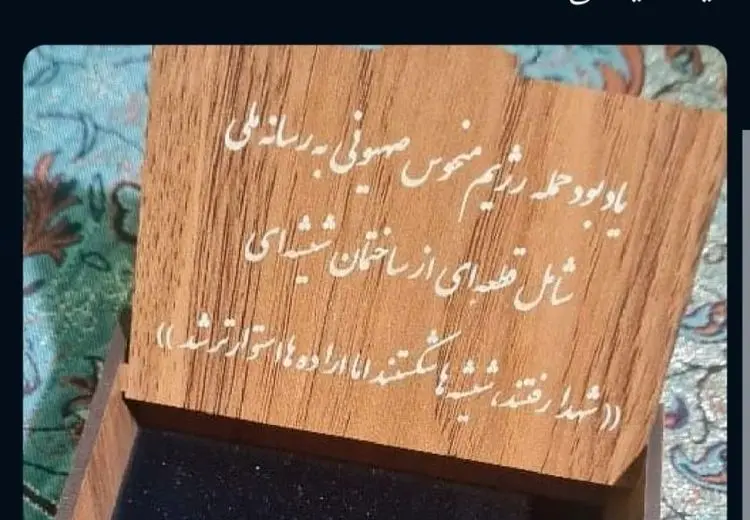 یادبود حمله رژیم منحوس صهیونی به رسانه ملی
شامل قطعه‌ای از ساختمان شیشه‌ای
((شهدا رفتند، شیشه‌ها شکستند اما اراده‌ها استوارتر شد))